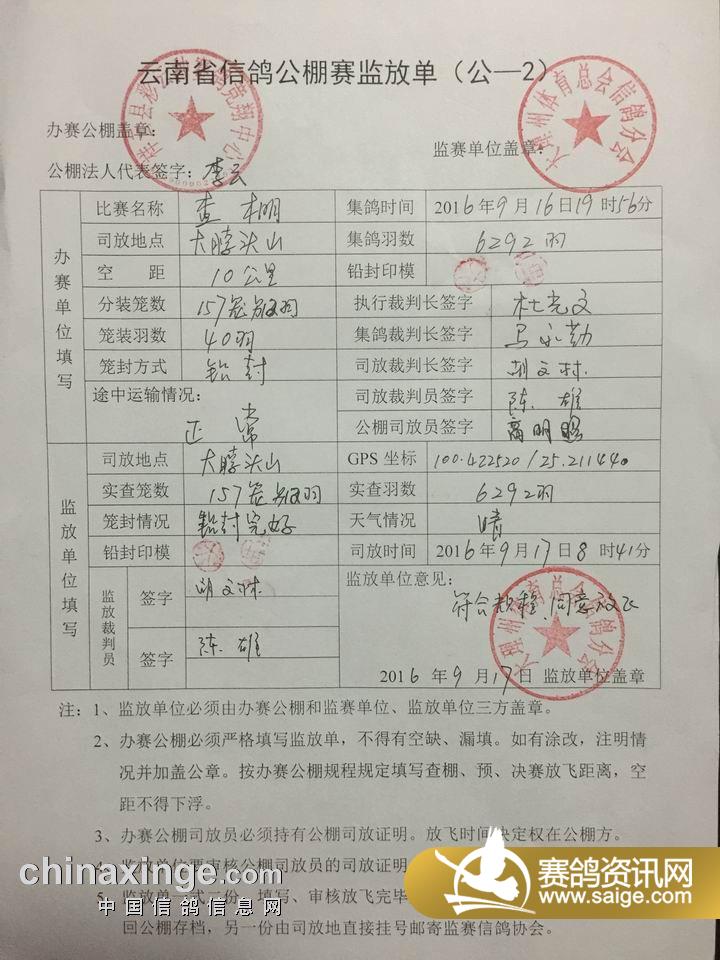 云南省信鸽公棚赛监放单（公—2）
办赛公棚盖章：
监赛单位盖章：
大理州体育总会信鸽分会
公棚法人代表签字：李云
办赛单位填写
比赛名称 查棚 集鸽时间 2016年9月16日19时56分
司放地点 大脖子山 集鸽羽数 6292羽
空距 10公里 铅封印模
分装笼数 157笼 羽 执行裁判长签字 杜光文
笼装羽数 40羽 集鸽裁判长签字 马永勤
笼封方式 铅封 司放裁判长签字 胡文林
途中运输情况： 司放裁判员签字 陈雄
正常 公棚司放员签字 高明
监放单位填写
司放地点 大脖子山 GPS 坐标 100.422520/25.211440
实查笼数 157笼 羽 实查羽数 6292羽
笼封情况 铅封完好 天气情况 晴
铅封印模 司放时间 2016年9月17日8时41分
监放裁判员 签字 胡文林 监放单位意见：
符合规程，同意放飞
签字 陈雄
大理州体育总会信鸽分会
2016年9月17日 监放单位盖章
注：1、监放单位必须由办赛公棚和监赛单位、监放单位三方盖章。
2、办赛公棚必须严格填写监放单，不得有空缺、漏填。如有涂改，注明情
况并加盖公章。按办赛公棚规程规定填写查棚、预、决赛放飞距离，空
距不得下浮。
3、办赛公棚司放员必须持有公棚司放证明。放飞时间决定权在公棚方。
4、监放单位要审核公棚司放员的司放证明
5、监放单一式二份，填写、审核放飞完毕
回公棚存档，另一份由司放地直接挂号邮寄监赛信鸽协会。
chinaxinge.com
中国信鸽信息网
赛鸽资讯网
www.saige.com